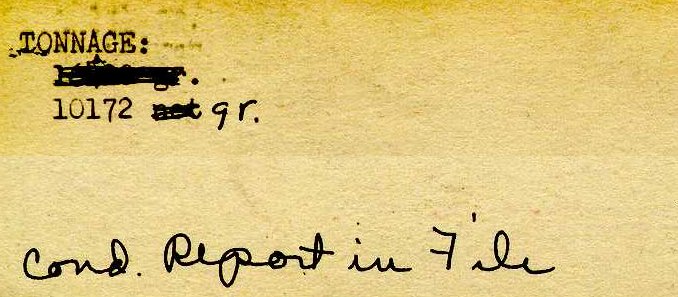 TONNAGE:
10172 gr.
Cond. Report in File